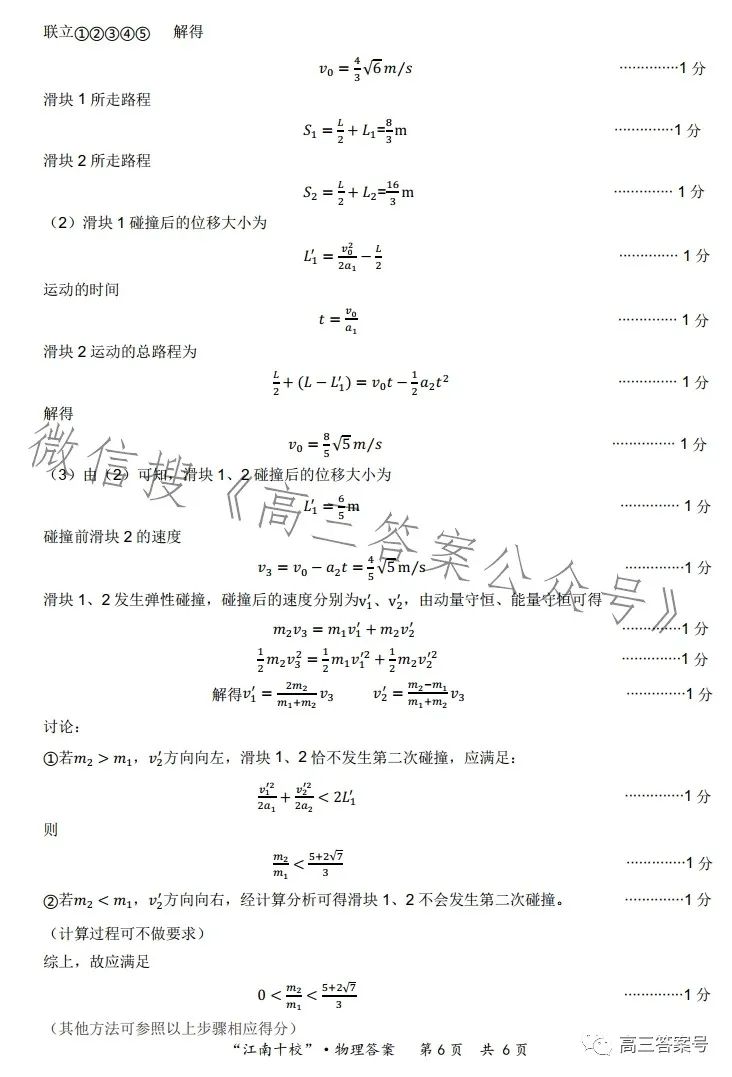 联立①②③④⑤ 解得
v₀ = 4/3 √6 m/s ···············1 分
滑块 1 所走路程
S₁ = L/2 + L₁=8/3 m ···············1 分
滑块 2 所走路程
S₂ = L/2 + L₂=16/3 m ··············· 1 分
(2)滑块 1 碰撞后的位移大小为
L₁′ = v₀²/2a₁ − L/2 ··············· 1 分
运动的时间
t = v₀/a₁ ··············· 1 分
滑块 2 运动的总路程为
L/2 + (L − L₁′) = v₀t − 1/2 a₂t² ··············· 1 分
解得
v₀ = 8/5 √5 m/s ··············· 1 分
(3)由(2)可知,滑块 1、2 碰撞后的位移大小为
L₁′ = 6/5 m ··············· 1 分
碰撞前滑块 2 的速度
v₃ = v₀ − a₂t = 4/5 √5 m/s ···············1 分
滑块 1、2 发生弹性碰撞,碰撞后的速度分别为v₁′、v₂′,由动量守恒、能量守恒可得
m₂v₃ = m₁v₁′ + m₂v₂′ ···············1 分
1/2 m₂v₃² = 1/2 m₁v₁′² + 1/2 m₂v₂′² ···············1 分
解得v₁′ = 2m₂/(m₁+m₂) v₃ v₂′ = (m₂−m₁)/(m₁+m₂) v₃ ···············1 分
讨论:
①若m₂ > m₁,v₂′方向向左,滑块 1、2 恰不发生第二次碰撞,应满足:
v₁′²/2a₁ + v₂′²/2a₂ < 2L₁′ ···············1 分
则
m₂/m₁ < (5+2√7)/3 ···············1 分
②若m₂ < m₁,v₂′方向向右,经计算分析可得滑块 1、2 不会发生第二次碰撞。 ···············1 分
(计算过程可不做要求)
综上,故应满足
0 < m₂/m₁ < (5+2√7)/3 ···············1 分
(其他方法可参照以上步骤相应得分)
“江南十校”·物理答案 第 6 页 共 6 页
高三答案号
微信搜《高三答案公众号》